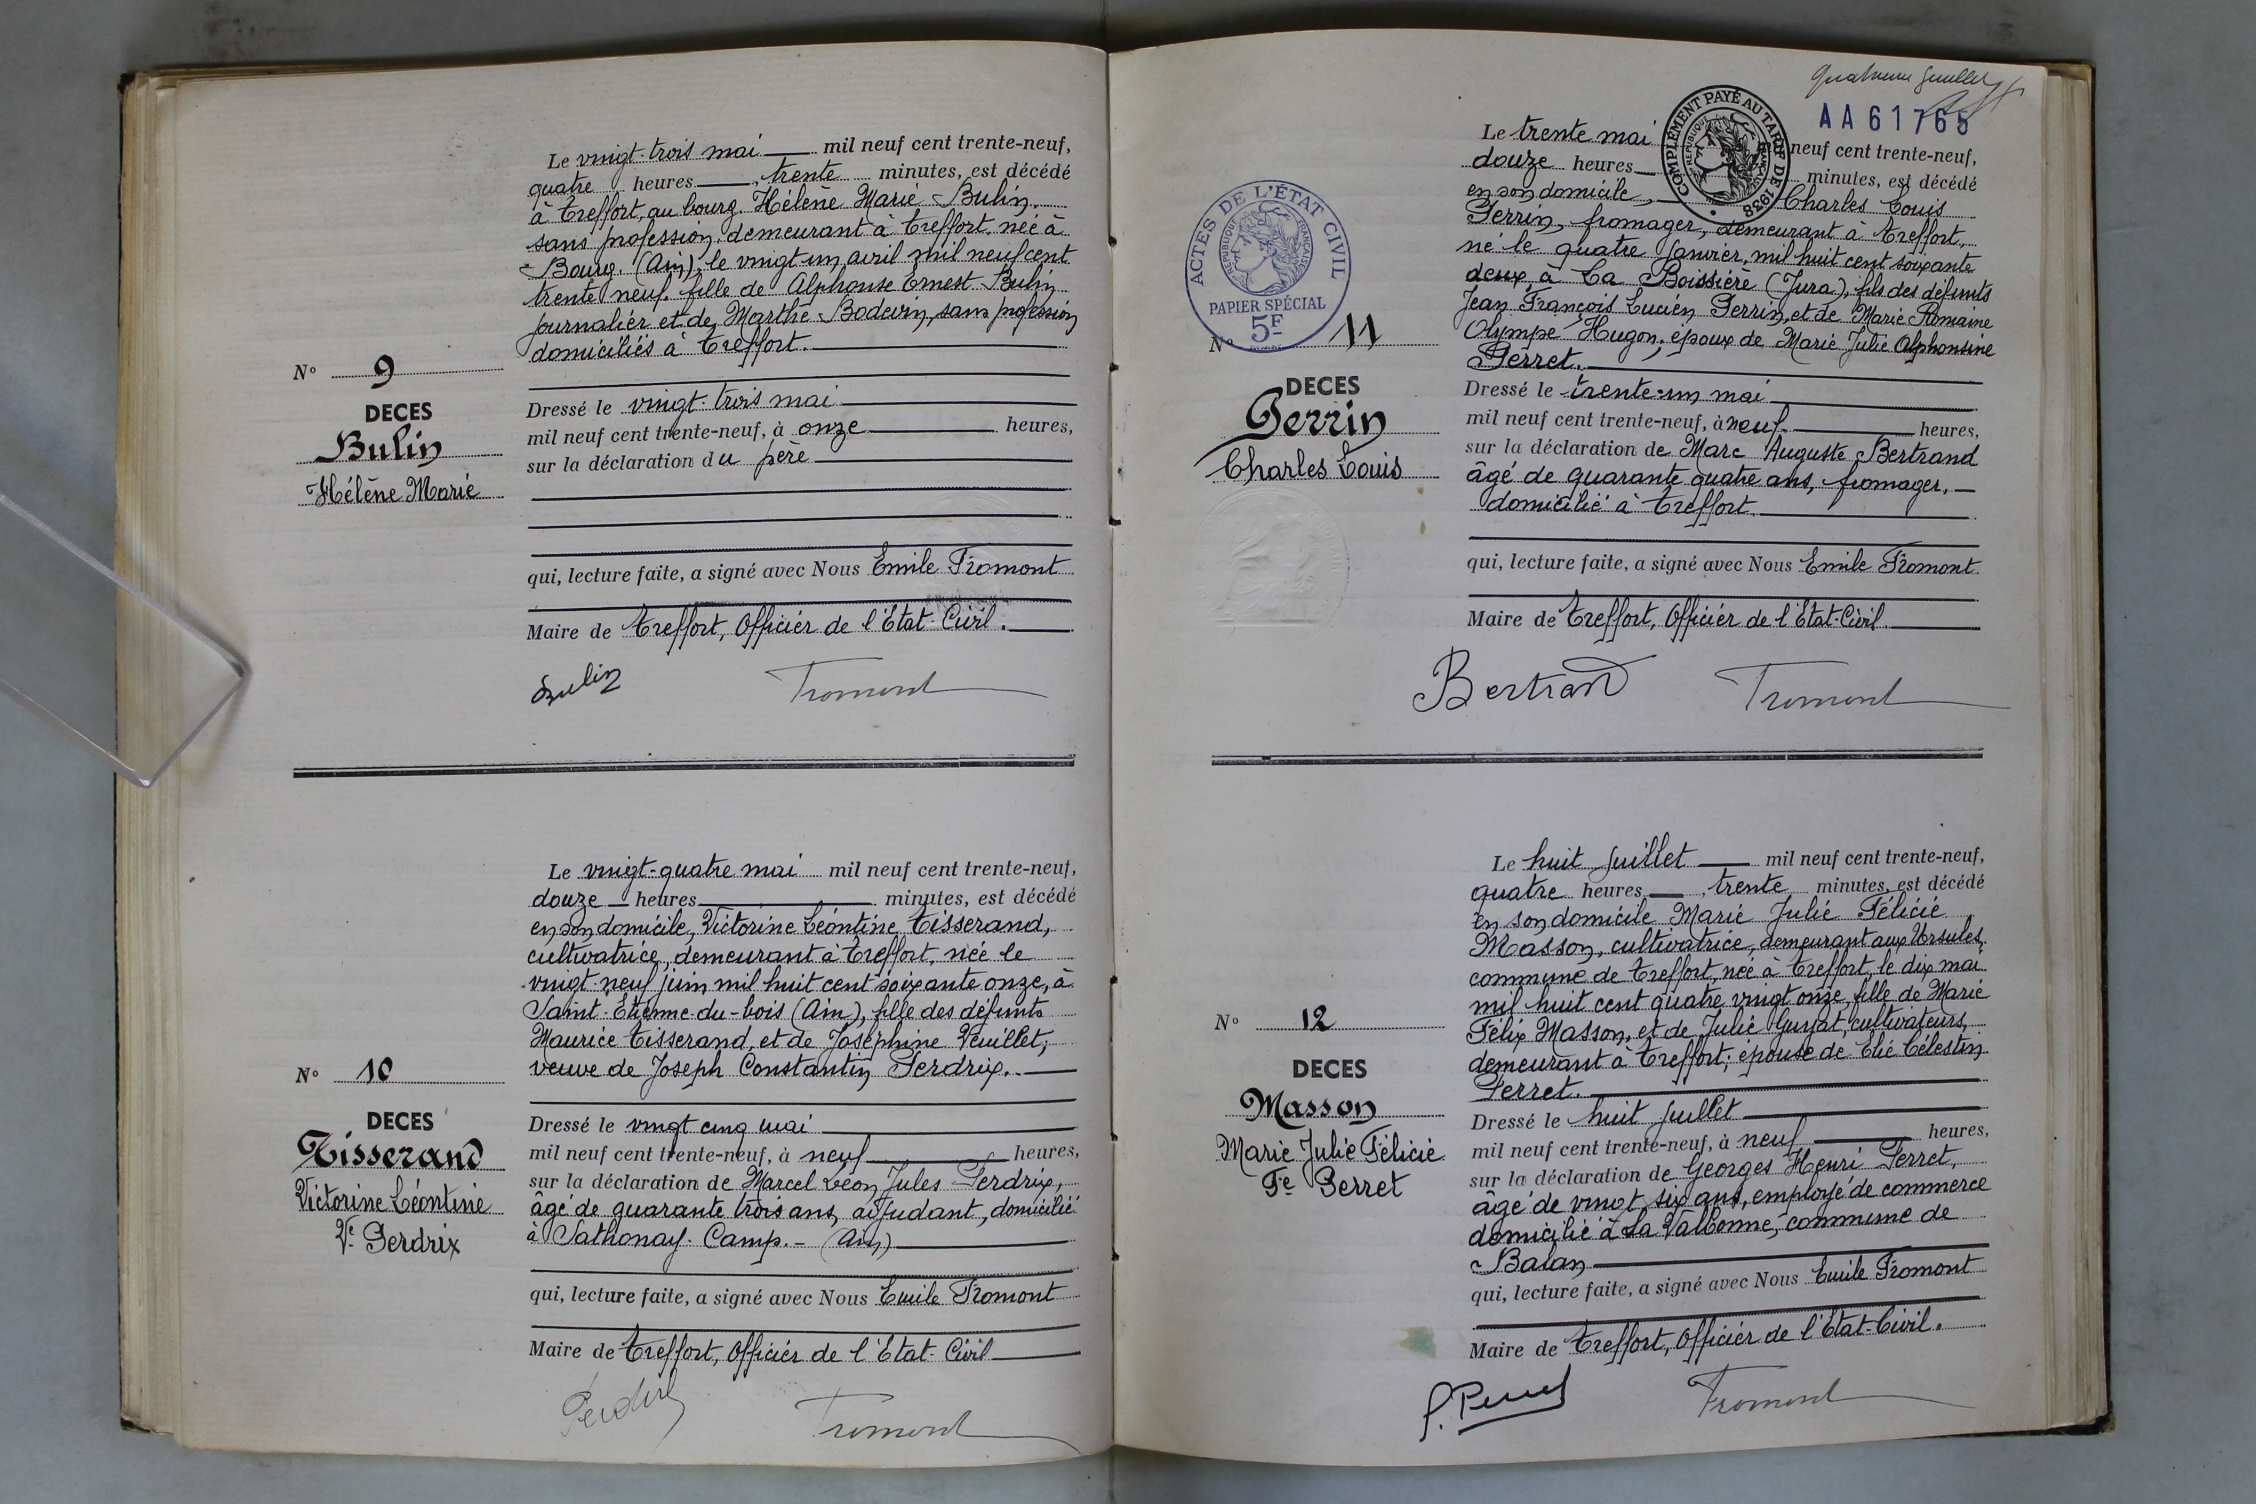 Le vingt-trois mai mil neuf cent trente-neuf,
quatre heures trente minutes, est décédé
à Treffort, au bourg. Hélène Marie Bulin.
sans profession. demeurant à Treffort. née à
Bourg. (Ain), le vingt-un avril mil neuf cent
trente neuf. fille de Alphonse Ernest Bulin
journalier et de Marthe Bodevin, sans profession
domiciliés à Treffort.
N° 9
DECES
Bulin
Hélène Marie
Dressé le vingt-trois mai
mil neuf cent trente-neuf, à onze heures,
sur la déclaration du père
qui, lecture faite, a signé avec Nous Emile Fromont
Maire de Treffort, Officier de l'Etat-Civil.
Bulin Fromont
Le vingt-quatre mai mil neuf cent trente-neuf,
douze heures minutes, est décédé
en son domicile, Victorine Léontine Tisserand,
cultivatrice, demeurant à Treffort, née le
vingt-neuf juin mil huit cent soixante onze, à
Saint-Etienne-du-bois (Ain), fille des défunts
Maurice Tisserand, et de Joséphine Veuillet,
veuve de Joseph Constantin Perdrix.
N° 10
DECES
Tisserand
Victorine Léontine
Ve Perdrix
Dressé le vingt cinq mai
mil neuf cent trente-neuf, à neuf heures,
sur la déclaration de Marcel Léon Jules Perdrix,
âgé de quarante trois ans, adjudant, domicilié
à Sathonay-Camp.- (Ain)
qui, lecture faite, a signé avec Nous Emile Fromont
Maire de Treffort, Officier de l'Etat-Civil
Perdrix Fromont
AA 61765
COMPLÉMENT PAYÉ AU TARIF DE 1938
REPUBLIQUE FRANÇAISE
Le trente mai neuf cent trente-neuf,
douze heures minutes, est décédé
en son domicile, Charles Louis
Perrin, fromager, demeurant à Treffort,
né le quatre Janvier, mil huit cent soixante
deux, à La Boissière (Jura), fils des défunts
Jean François Lucien Perrin, et de Marie Romaine
Olympe Hugon; époux de Marie Julie Alphonsine
Perret.
ACTES DE L'ÉTAT CIVIL
REPUBLIQUE FRANÇAISE
PAPIER SPÉCIAL
5F
N° 11
DECES
Perrin
Charles Louis
Dressé le trente-un mai
mil neuf cent trente-neuf, à neuf heures,
sur la déclaration de Marc Auguste Bertrand
âgé de quarante quatre ans, fromager,
domicilié à Treffort.
qui, lecture faite, a signé avec Nous Emile Fromont.
Maire de Treffort, Officier de l'Etat-Civil.
Bertrand Fromont
Le huit Juillet mil neuf cent trente-neuf,
quatre heures, trente minutes, est décédé
en son domicile Marie Julie Félicie
Masson, cultivatrice, demeurant aux Ursules,
commune de Treffort, née à Treffort, le dix mai
mil huit cent quatre vingt onze, fille de Marie
Félix Masson, et de Julie Guyat, cultivateurs,
demeurant à Treffort; épouse de Elie Célestin
Perret.
N° 12
DECES
Masson
Marie Julie Félicie
Fe Perret
Dressé le huit Juillet
mil neuf cent trente-neuf, à neuf heures,
sur la déclaration de Georges Henri Perret,
âgé de vingt six ans, employé de commerce
domicilié à La Valbonne, commune de
Balan
qui, lecture faite, a signé avec Nous Emile Fromont
Maire de Treffort, Officier de l'Etat-Civil.
Fromont